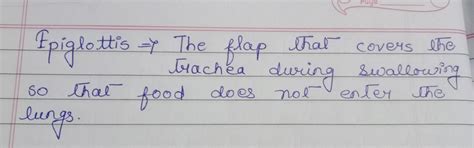 Epiglottis ⇒ The flap that covers the
trachea during swallowing
so that food does not enter the
lungs.